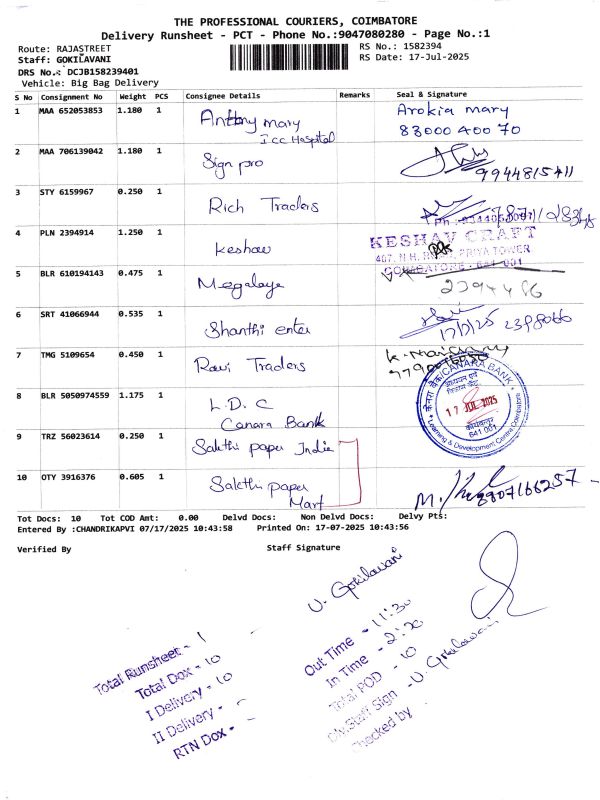 THE PROFESSIONAL COURIERS, COIMBATORE
Delivery Runsheet - PCT - Phone No.:9047080280 - Page No.:1
Route: RAJASTREET
RS No.: 1582394
Staff: GOKILAVANI
RS Date: 17-Jul-2025
DRS No.: DCJB158239401
Vehicle: Big Bag Delivery
S No Consignment No Weight PCS Consignee Details Remarks Seal & Signature
1 MAA 652053853 1.180 1 Anthony mary Arokia mary
ICC Hospital 83000 400 70
2 MAA 706139042 1.180 1 Sign pro
9944815411
3 STY 6159967 0.250 1 Rich Traders
4 PLN 2394914 1.250 1 Keshav KESHAV CRAFT
PRIYA TOWER
COIMBATORE - 641 001
5 BLR 610194143 0.475 1 Megalaya
6 SRT 41066944 0.535 1 Shanthi enter
17/7/25
7 TMG 5109654 0.450 1 Ravi Traders
8 BLR 5050974559 1.175 1 L.D.C
Canara Bank
CANARA BANK
17 JUL 2025
641 001
Learning & Development Centre Coimbatore
9 TRZ 56023614 0.250 1 Sakthi paper India
10 OTY 3916376 0.605 1 Sakthi paper
Mart
8907166257
Tot Docs: 10 Tot COD Amt: 0.00 Delvd Docs: Non Delvd Docs: Delvy Pts:
Entered By :CHANDRIKAPVI 07/17/2025 10:43:58 Printed On: 17-07-2025 10:43:56
Verified By Staff Signature
U. Gokilavani
Total Runsheet - 1
Total Dox - 10
I Delivery - 10
II Delivery -
RTN Dox -
Out Time - 11:30
In Time - 2:20
Total POD - 10
Dly.Staff Sign - U. Gokilavani
Checked by